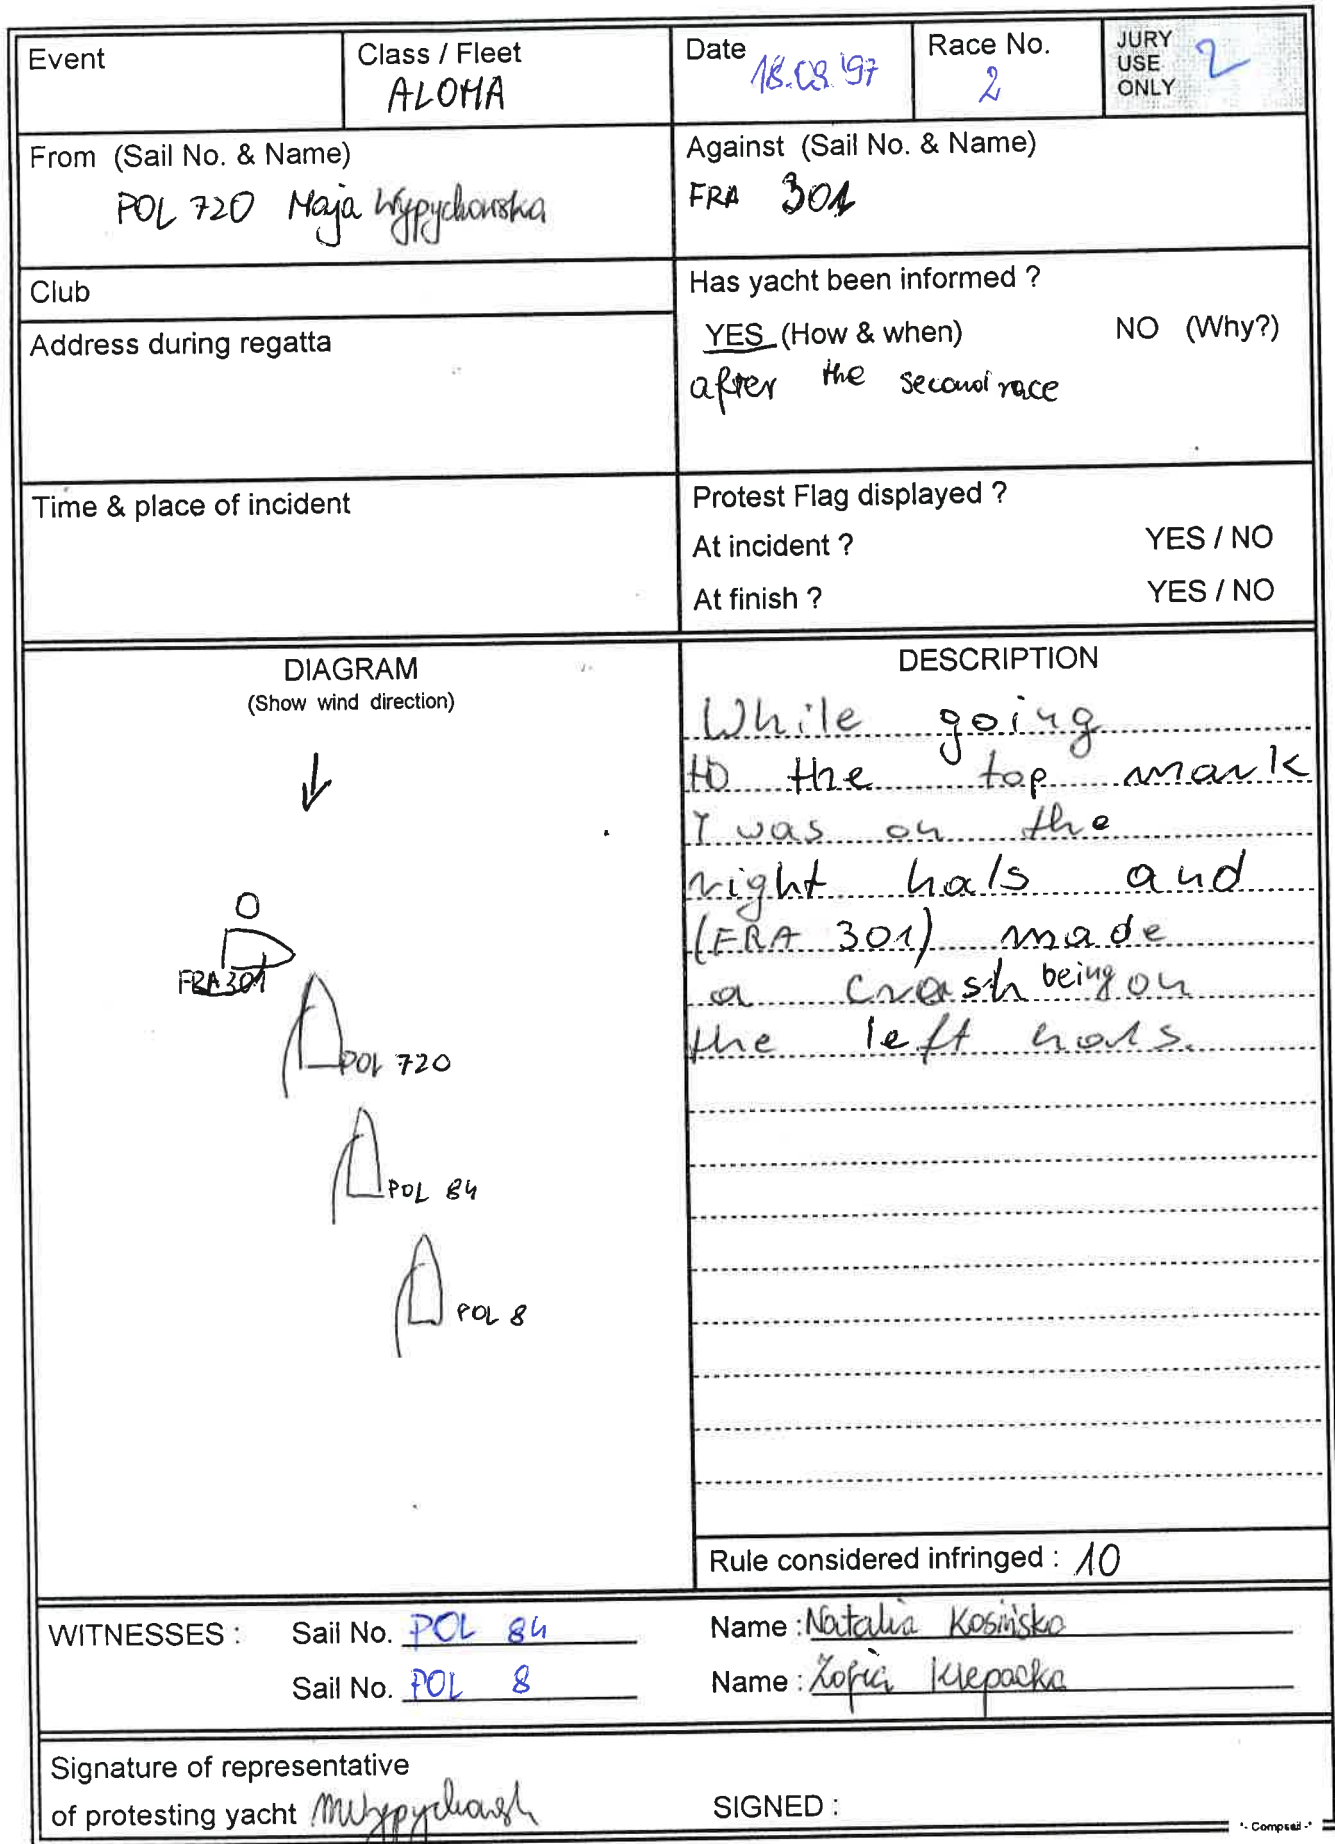 Event
Class / Fleet
ALOHA
Date 18.08.97
Race No.
2
JURY
USE
ONLY
2
From (Sail No. & Name)
POL 720 Maja Wypychowska
Against (Sail No. & Name)
FRA 301
Club
Has yacht been informed ?
YES (How & when) NO (Why?)
after the second race
Address during regatta
Time & place of incident
Protest Flag displayed ?
At incident ? YES / NO
At finish ? YES / NO
DIAGRAM
(Show wind direction)
FRA 301
POL 720
POL 84
POL 8
DESCRIPTION
While going
to the top mark
I was on the
right hals and
(FRA 301) made
a crash being on
the left hals.
Rule considered infringed : 10
WITNESSES : Sail No. POL 84 Name : Natalia Kosińska
Sail No. POL 8 Name : Zofia Klepacka
Signature of representative
of protesting yacht MWypychowsk
SIGNED :
*- Compsail -*